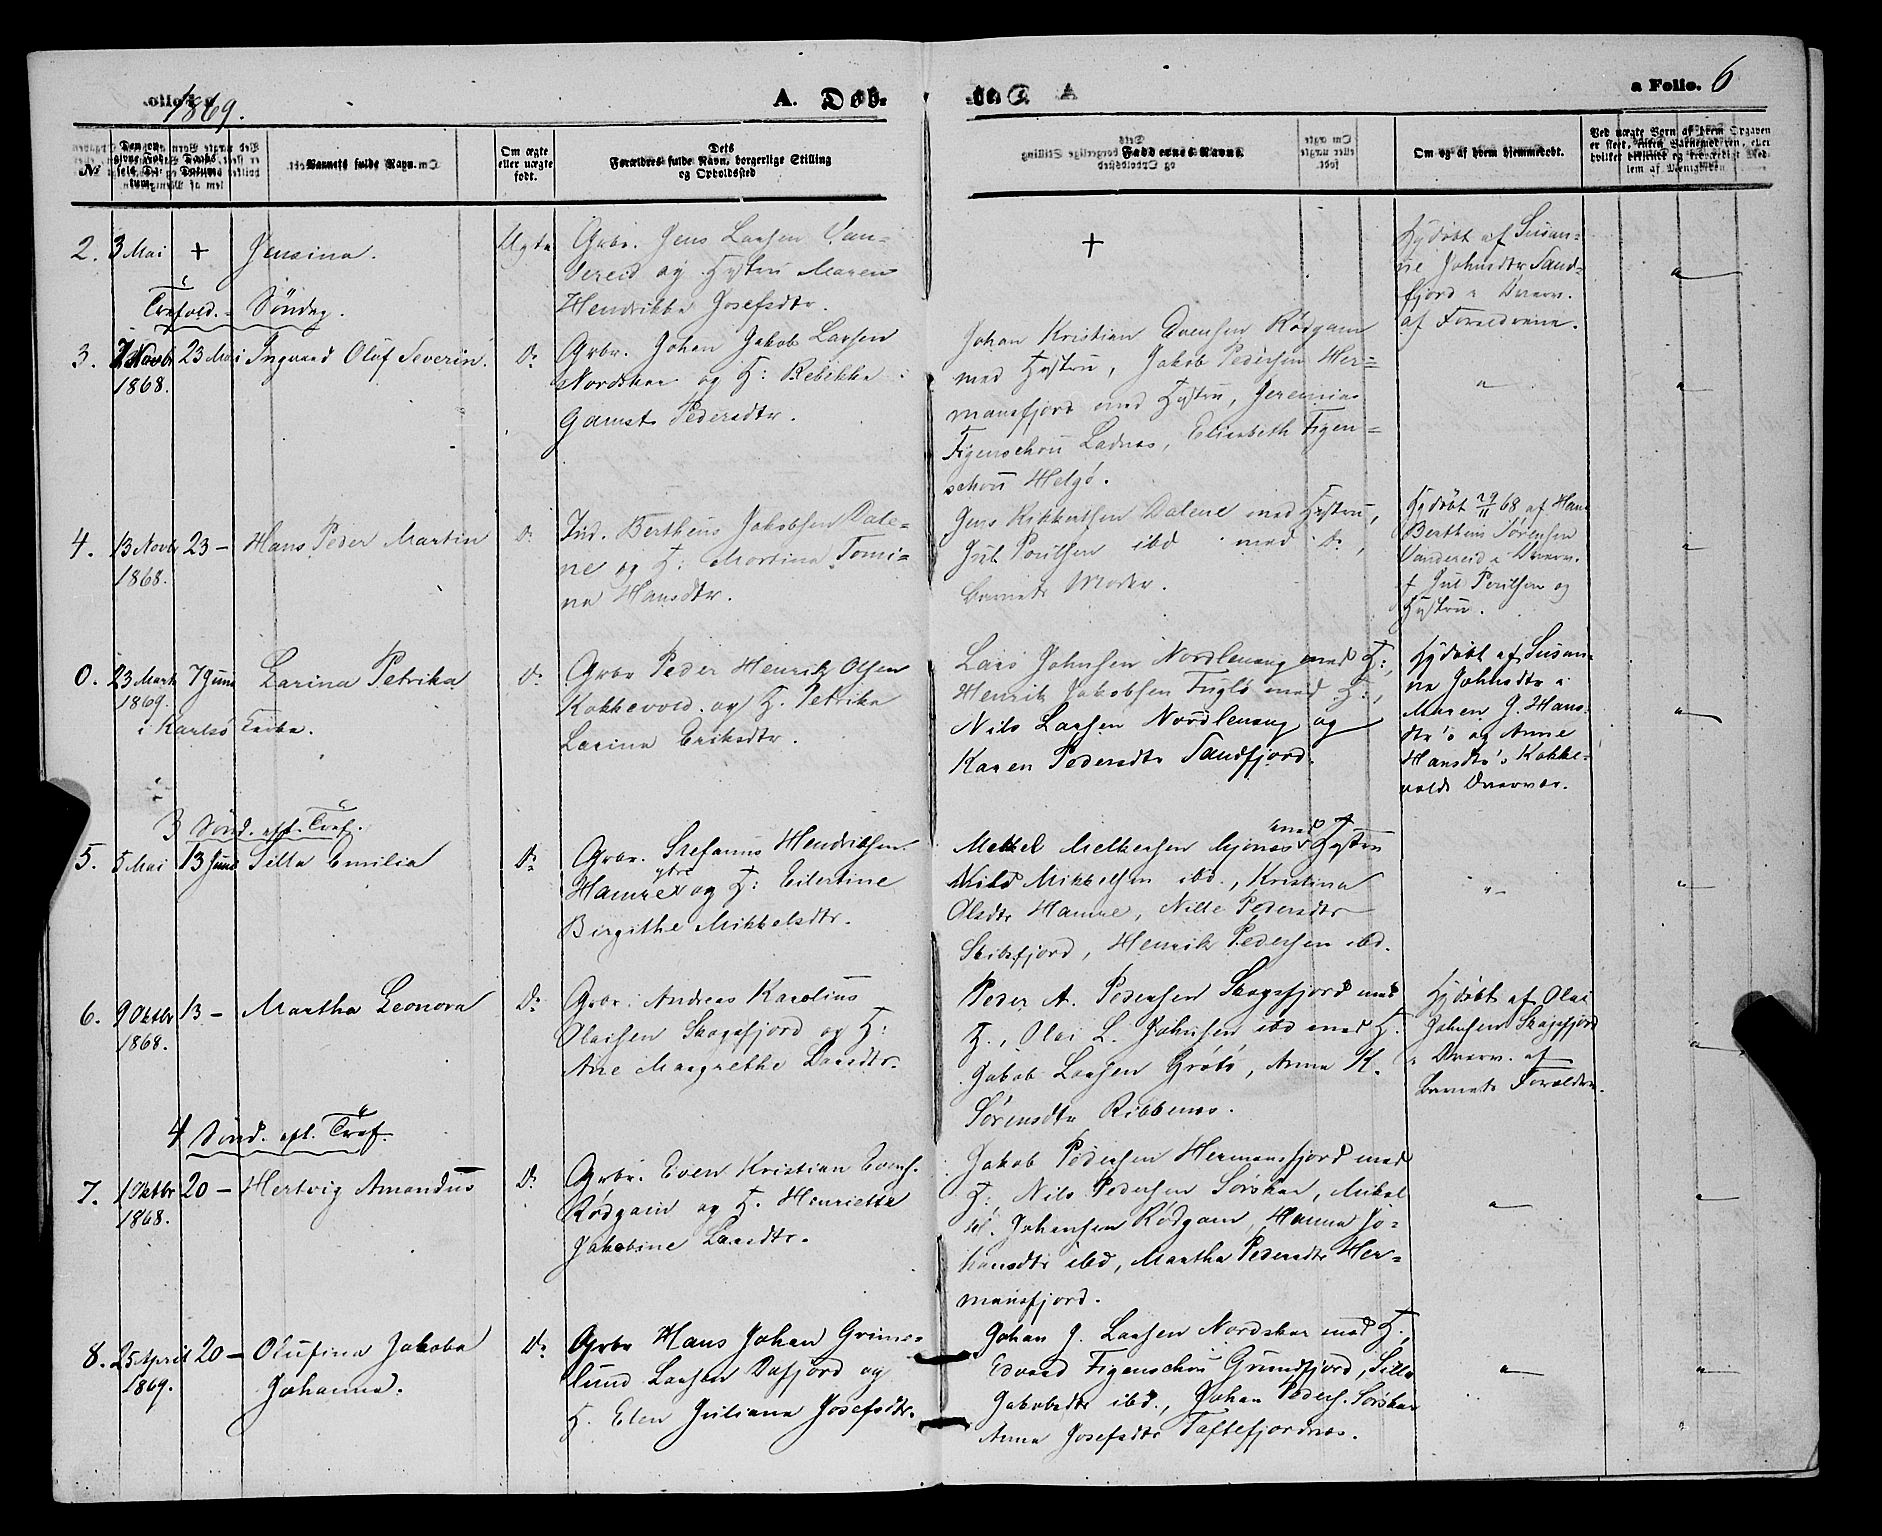 1869.
A. Døb.
a Folio. 6
No
Barnets fulde Navn.
Om ægte eller uægte født.
Dets Forældres fulde Navn, borgerlige Stilling og Opholdssted
Faddernes Navne.
Om og af hvem hjemmedøbt.
2. 3 Mai + Jensina. Ægte
Grbr. Jens Larsen Van-
dereid og Hystru Maren
Hendrikka Josefsdtr.
+
Hjdøbt af Susan-
ne Johnsdtr Sand-
fjord i Overv.
af Forældrene.
"
Trefold. Søndag.
3. 7 Novbr 1868. 23 Mai Ingvard Oluf Severin. Do
Grbr. Johan Jakob Larsen
Nordskar og H: Rebekka
Gamst Pedersdtr.
Johan Kristian Evensen Rødgam
med Hystru, Jakob Pedersen Her-
mansfjord med Hystru, Jeremias
Figenschou Ladnæs, Elisabeth Figen-
schou Helgø.
" "
4. 13 Novbr 1868. 23 – Hans Peder Martin Do
Ind. Bertheus Jakobsen Dale-
ne og H: Martina Tomi-
na Hansdtr.
Jens Rikkertsen Dalene med Hystru,
Jul Poulsen ibd med Do,
Barnets Moder.
Hjdøbt 29/11 68 af Hans
Bertheus Sørensen
Vandereid i Overv.
af Jul Poulsen og
Hystru.
"
0. 23 Marts 1869. 7 Juni Larina Petrika Do
i Karlsø Kirke.
Grbr Peder Henrik Olsen
Kokkevold. og H. Petrika
Larina Eriksdtr.
Lars Johnsen Nordlenang med H:,
Henrik Jakobsen Fuglø med H:,
Nils Larsen Nordlenang og
Karen Pedersdtr Sandfjord.
Hjdøbt af Susan-
ne Johnsdtr i
Maren J. Hans-
dtr's og Anne
Hansdtr's Kokke-
volds Overvær.
"
3 Sønd. eft. Tref.
5. 5 Mai 13 Juni Silla Emilia Do
Grbr. Stefanus Hendriksen
Hamre ytre og H: Eilertine
Birgithe Mikkelsdtr.
Mekkel Melkersen Mjønes med Hystru
Nils Mikkelsen ibd., Kristina
Olsdtr Hamre, Nille Pedersdtr
Skibsfjord, Henrik Pedersen ibd.
" "
6. 9 Oktbr 1868. 13 – Martha Leonora Do
Grbr. Andreas Karolius
Olaisen Skogsfjord og H:
Ane Margrethe Larsdtr.
Peder A. Pedersen Skogsfjord med
H., Olai L. Johnsen ibd med H.
Jakob Larsen Grøtø, Anna K.
Sørensdtr Ribbenæs.
Hjdøbt af Olai
Johnsen Skogsfjord
i Overv. af
Barnets Forældre.
"
4 Sønd. eft. Tref.
7. 1 Oktbr 1868. 20 – Hertvig Amandus Do
Grbr. Even Kristian Evens.
Rødgam og H. Henrietta
Jakobine Larsdtr.
Jakob Pedersen Hermansfjord med
H:, Nils Pedersen Sørskar, Mikal
M. Johansen Rødgam, Hanna Jo-
hansdtr ibd, Martha Pedersdtr Her-
mansfjord.
" "
8. 25 April 1869. 20 – Olufina Jakoba Johanna. Do
Grbr Hans Johan Grime-
lund Larsen Dafjord og
H. Elen Juliana Josefsdtr.
Johan J. Larsen Nordskar med H.,
Edvard Figenschou Grundfjord, Silla
Jakobsdtr ibd., Johan Peders. Sørskar
Anna Josefsdtr Toftefjordnæs.
" "